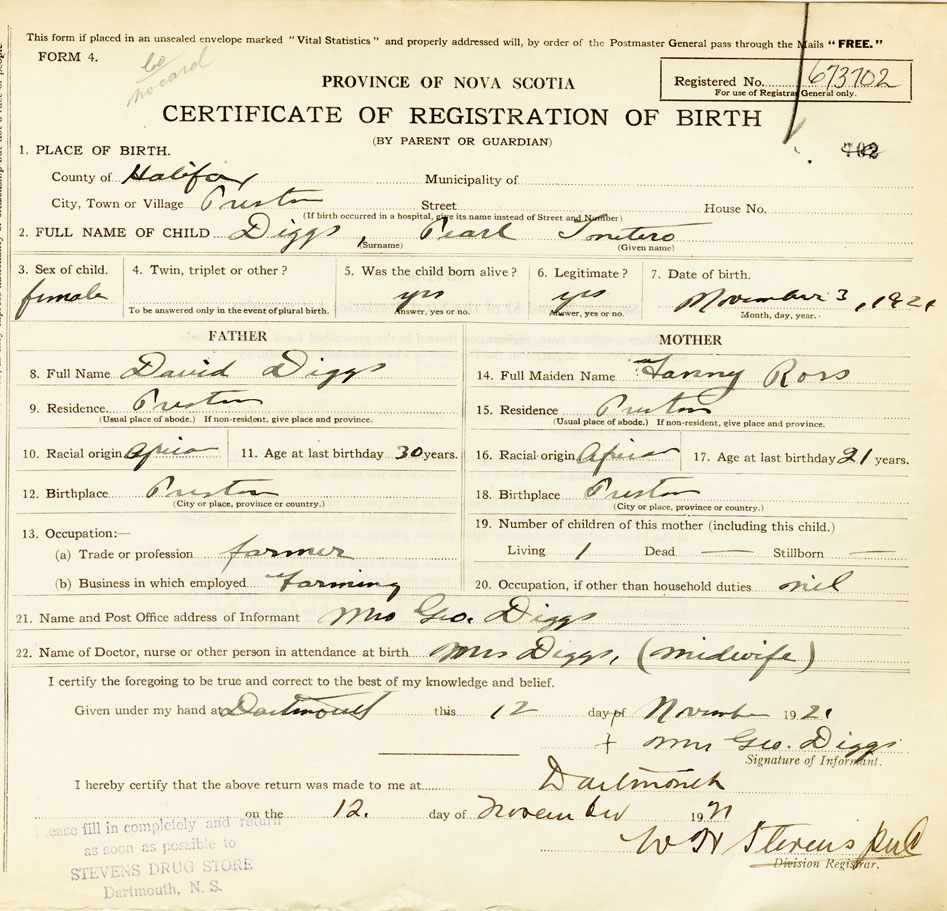 This form if placed in an unsealed envelope marked "Vital Statistics" and properly addressed will, by order of the Postmaster General pass through the Mails "FREE."
FORM 4.
PROVINCE OF NOVA SCOTIA
Registered No. 673702
For use of Registrar General only.
CERTIFICATE OF REGISTRATION OF BIRTH
(BY PARENT OR GUARDIAN)
702
1. PLACE OF BIRTH.
County of Halifax Municipality of
City, Town or Village Preston Street House No.
(If birth occurred in a hospital, give its name instead of Street and Number)
2. FULL NAME OF CHILD Diggs, Pearl
(Surname) (Given name)
3. Sex of child. 4. Twin, triplet or other? 5. Was the child born alive? 6. Legitimate? 7. Date of birth.
female yes yes November 3, 1921
To be answered only in the event of plural birth. Answer, yes or no. Answer, yes or no. Month, day, year.
FATHER MOTHER
8. Full Name David Diggs 14. Full Maiden Name Fanny Ross
9. Residence Preston 15. Residence Preston
(Usual place of abode.) If non-resident, give place and province. (Usual place of abode.) If non-resident, give place and province.
10. Racial origin Africa 11. Age at last birthday 30 years. 16. Racial origin Africa 17. Age at last birthday 21 years.
12. Birthplace Preston 18. Birthplace Preston
(City or place, province or country.) (City or place, province or country.)
13. Occupation:— 19. Number of children of this mother (including this child.)
(a) Trade or profession farmer Living 1 Dead — Stillborn —
(b) Business in which employed Farming 20. Occupation, if other than household duties nil
21. Name and Post Office address of Informant Mrs Geo. Diggs
22. Name of Doctor, nurse or other person in attendance at birth Mrs Diggs, (midwife)
I certify the foregoing to be true and correct to the best of my knowledge and belief.
Given under my hand at Dartmouth this 12 day of November 1921
+ Mrs Geo. Diggs
Signature of Informant.
I hereby certify that the above return was made to me at Dartmouth
on the 12. day of November 1921
W H Stevens
Division Registrar.
Please fill in completely and return
as soon as possible to
STEVENS DRUG STORE
Dartmouth, N. S.